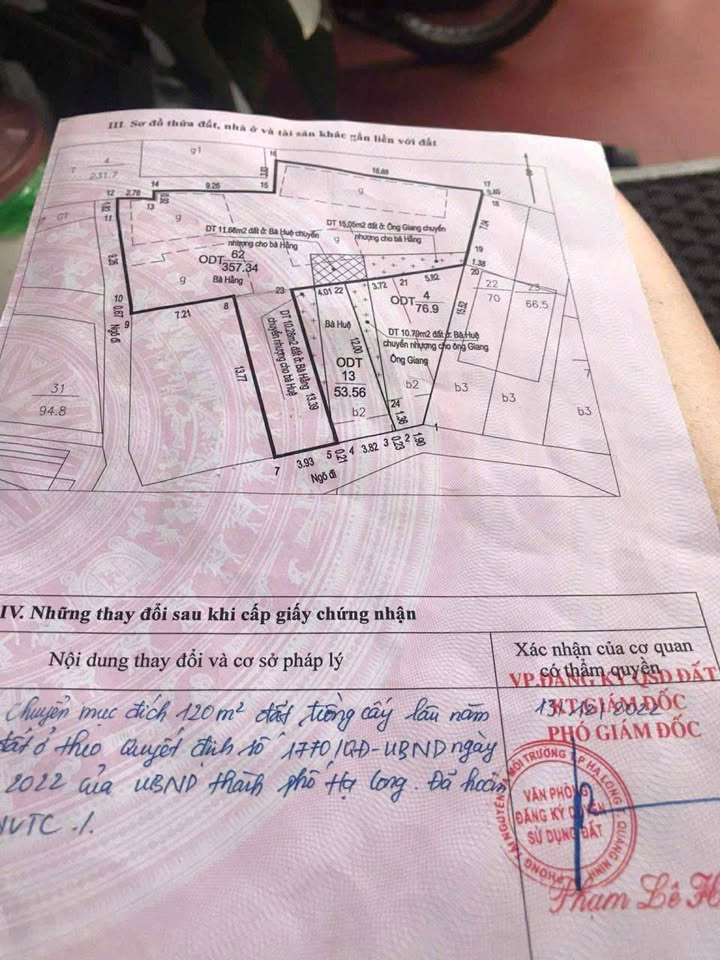 III. Sơ đồ thửa đất, nhà ở và tài sản khác gắn liền với đất
4
231.7
T
g1
16
16.88
17
18
14
9.25
15
12
2.78
13
11
g
g
GT
DT 11.66m2 đất ở: Bà Huệ chuyển
nhượng cho bà Hằng
DT 15.05m2 đất ở: Ông Giang chuyển
nhượng cho bà Hằng
g
7.14
19
1.38
20
ODT 62
357.34
Bà Hằng
g
9.26
10
0.87
9
Ngõ đi
7.21
8
23
4.01
22
3.72
21
5.82
ODT 4
76.9
22
70
23
66.5
13.77
DT 10.28m2 đất ở: Bà Hằng
chuyển nhượng cho bà Huệ
13.39
Bà Huệ
12.00
ODT
13
53.56
DT 10.79m2 đất ở: Bà Huệ
chuyển nhượng cho ông Giang
Ông Giang
15.52
31
94.8
b2
b2
b3
b3
b3
7
24
1.36
7
3.93
5
0.21
4
3.82
3
0.23
2
1.90
1
Ngõ đi
IV. Những thay đổi sau khi cấp giấy chứng nhận
Nội dung thay đổi và cơ sở pháp lý
Xác nhận của cơ quan
có thẩm quyền
VP.ĐĂNG KÝ QSD ĐẤT
KT.GIÁM ĐỐC
13/12/2022
PHÓ GIÁM ĐỐC
Chuyển mục đích 120m² đất trồng cây lâu năm
đất ở theo Quyết định số 1770/QĐ-UBND ngày
2022 của UBND thành phố Hạ Long. Đã hoàn
NVTC ./.
VĂN PHÒNG
ĐĂNG KÝ QUYỀN
SỬ DỤNG ĐẤT
PHÒNG TÀI NGUYÊN VÀ MÔI TRƯỜNG T.P HẠ LONG QUẢNG NINH
Phạm Lê H